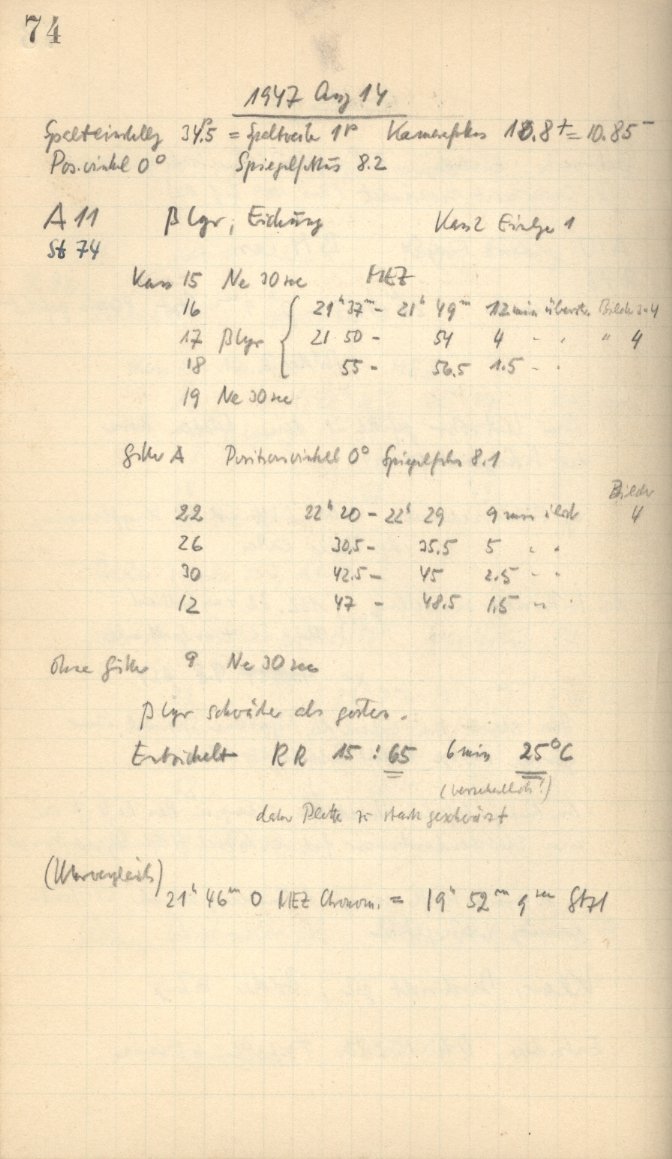 74
1947 Aug 14
Spalteinstellg 34.5 = Spaltweite 1 Kamerafokus 10.8+ = 10.85-
Pos.winkel 0° Spiegelfokus 8.2
A 11 β Lyr, Eichung Kass 2 Einlage 1
St 74
Kass 15 Ne 30 sec MEZ
16 21h 37m - 21h 49m 12 min überstr. Bilder 3-4
17 β Lyr 21 50 - 54 4 " " " 4
18 55 - 56.5 1.5 " "
19 Ne 30 sec
Gitter A Positionswinkel 0° Spiegelfokus 8.1
Bilder
22 22h 20 - 22h 29 9 min 4
26 30.5 - 35.5 5 " "
30 42.5 - 45 2.5 " "
12 47 - 48.5 1.5 " "
ohne Gitter 9 Ne 30 sec
β Lyr schwächer als gestern.
Entwickelt RR 15 : 65 6 min 25°C
(versehentlich!)
daher Platte zu stark geschwärzt
(Uhrvergleich)
21h 46m 0 MEZ Chronom. = 19h 52m 9sec StZt